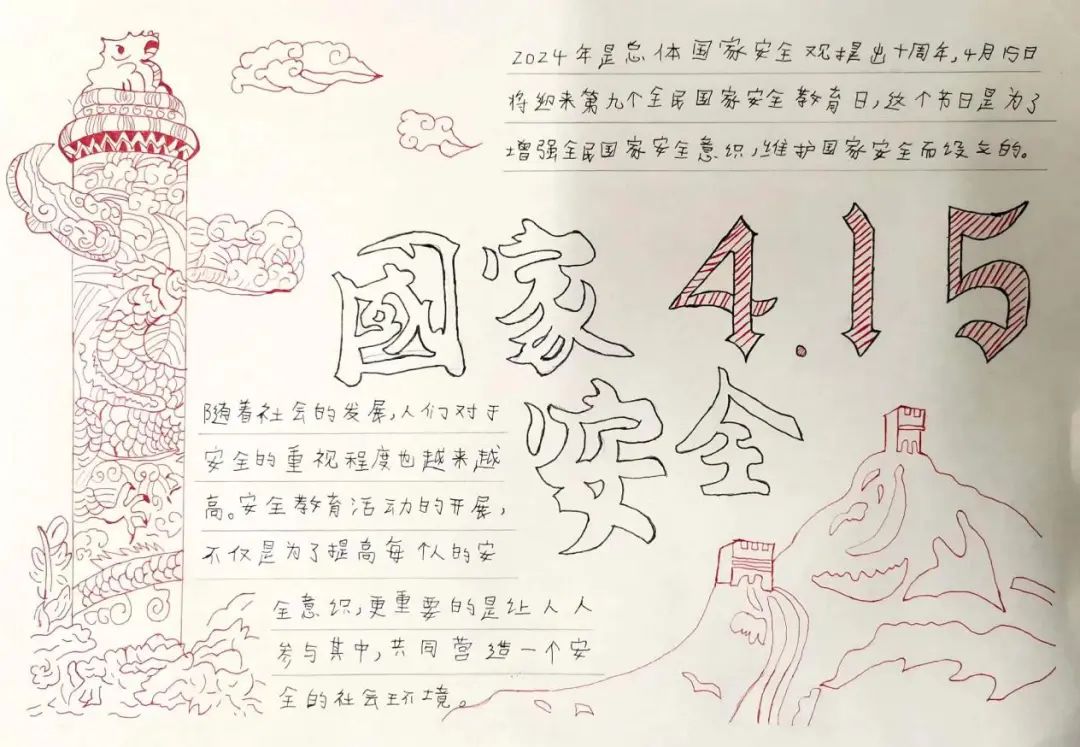 2024年是总体国家安全观提出十周年,4月15日
将迎来第九个全民国家安全教育日,这个节日是为了
增强全民国家安全意识,维护国家安全而设立的。
國家
4.15
安全
随着社会的发展,人们对于
安全的重视程度也越来越
高。安全教育活动的开展,
不仅是为了提高每个人的安
全意识,更重要的是让人人
参与其中,共同营造一个安
全的社会环境。